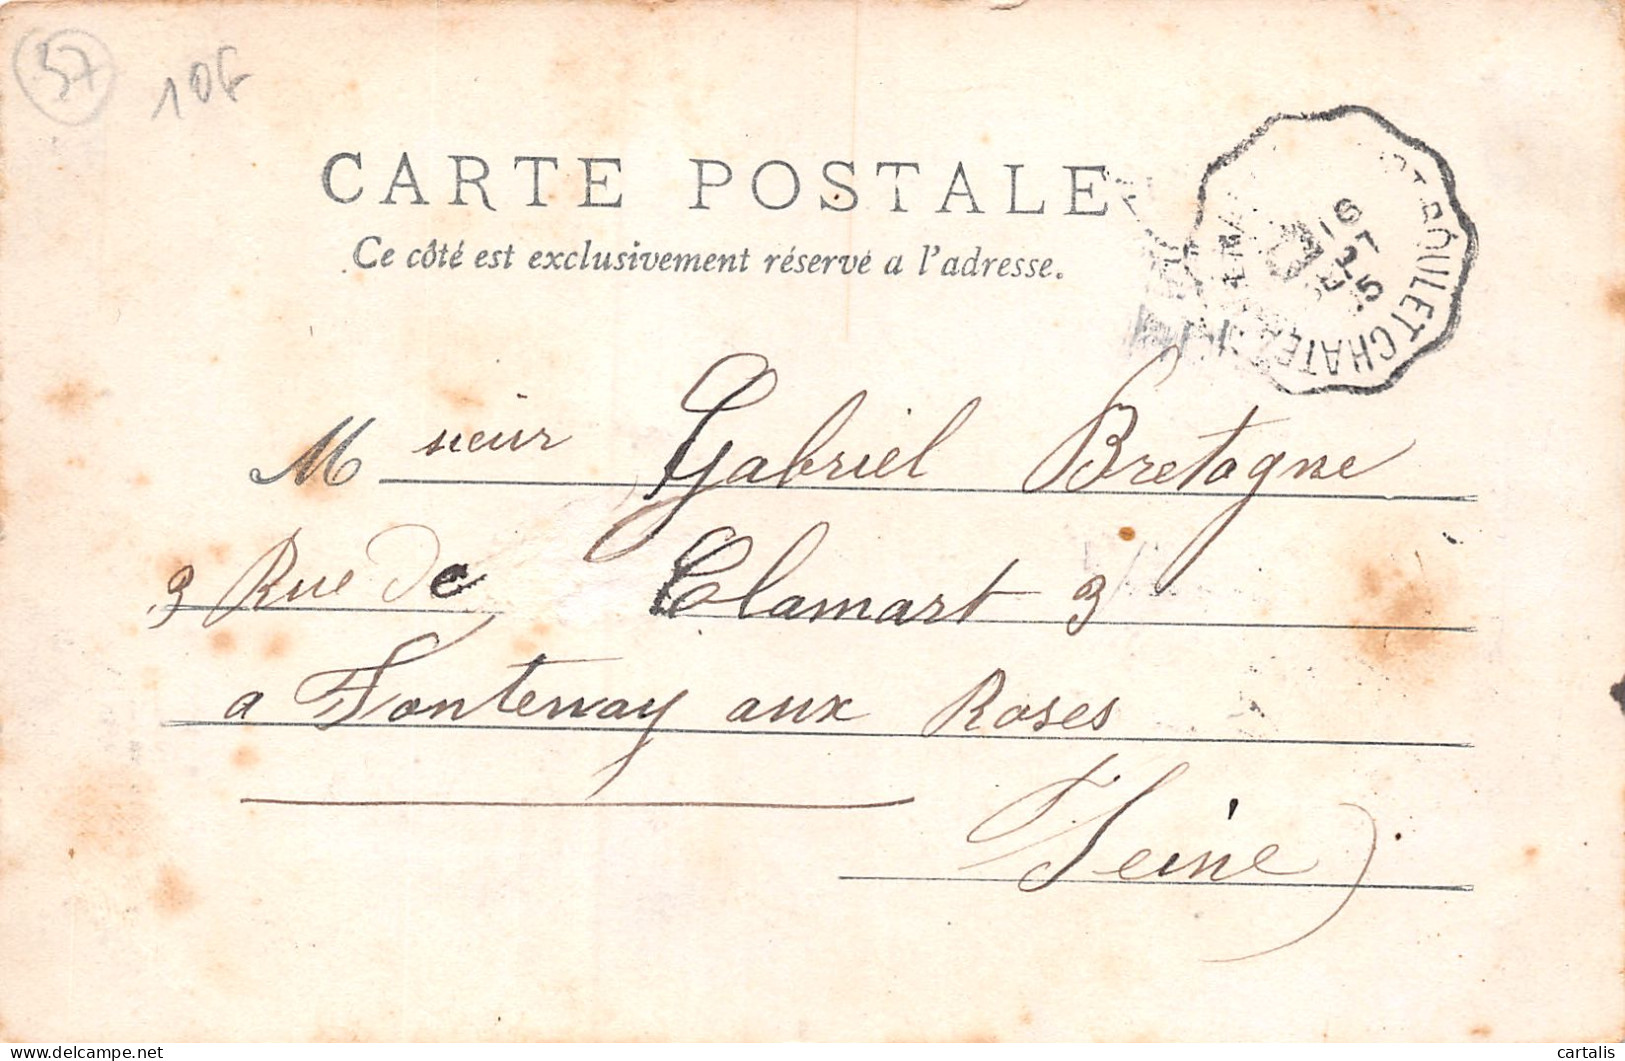 57
10F
CARTE POSTALE
Ce côté est exclusivement réservé a l'adresse.
16
ET CHATEA
Msieur Gabriel Bretagne
3 Rue de Clamart 3
a Fontenay aux Roses
Seine)
delcampe.net
cartalis